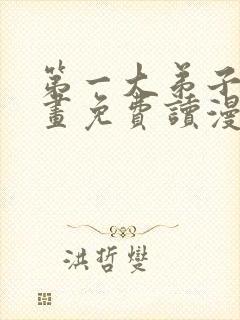 第一大弟子
畫免費讀漫
洪哲燮